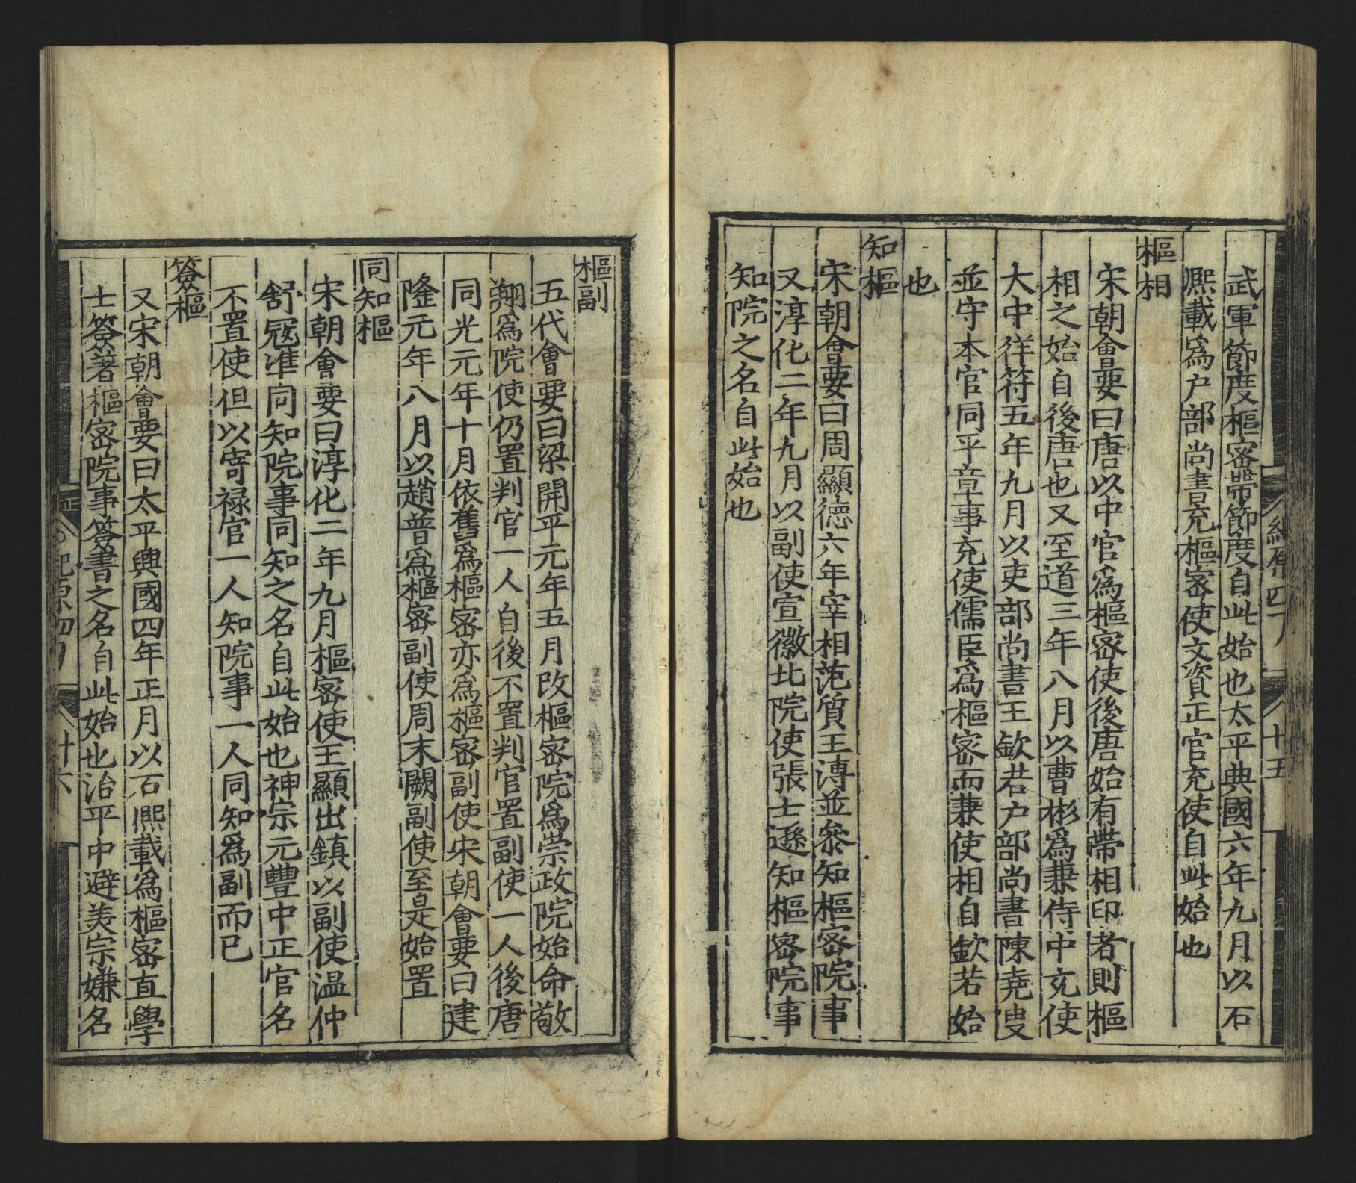 武軍節度樞密帶節度自此始也太平典國六年九月以石
熈載爲户部尚書充樞密使文資正官充使自此始也
樞相
宋朝會要曰唐以中官爲樞密使後唐始有帶相印者則樞
相之始自後唐也又至道三年八月以曹彬爲兼侍中充使
大中祥符五年九月以吏部尚書王欽若户部尚書陳堯叟
並守本官同平章事充使儒臣爲樞密而兼使相自欽若始
也
知樞
宋朝會要曰周顯德六年宰相范質王溥並叅知樞密院事
又淳化二年九月以副使宣徽北院使張士遜知樞密院事
知院之名自此始也
樞副
五代會要曰梁開平元年五月改樞密院爲崇政院始命敬
翔爲院使仍置判官一人自後不置判官置副使一人後唐
同光元年十月依舊爲樞密亦爲樞密副使宋朝會要曰建
隆元年八月以趙普爲樞密副使周末闕副使至是始置
同知樞
宋朝會要曰淳化二年九月樞密使王顯出鎮以副使温仲
舒冦準同知院事同知之名自此始也神宗元豐中正官名
不置使但以寄禄官一人知院事一人同知爲副而已
簽樞
又宋朝會要曰太平興國四年正月以石熈載爲樞密直學
士簽著樞密院事簽書之名自此始也治平中避英宗嫌名
十五
廿六